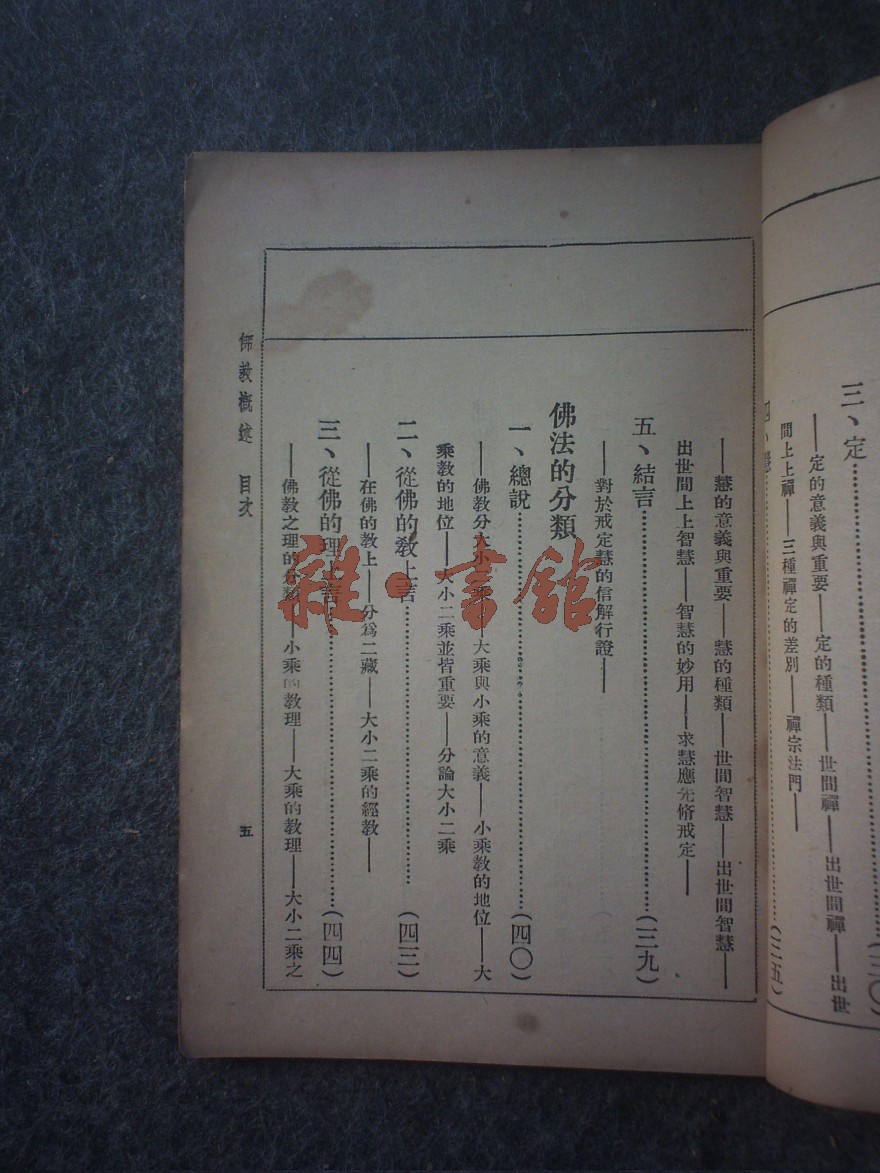 三、定……………(三〇)
——定的意義與重要——定的種類——世間禪——出世間禪——出世
間上上禪——三種禪定的差別——禪宗法門——
四、慧……………(三五)
——慧的意義與重要——慧的種類——世間智慧——出世間智慧——
出世間上上智慧——智慧的妙用——求慧應先修戒定——
五、結言……………(三九)
——對於戒定慧的信解行證——
佛法的分類
一、總說……………(四〇)
——佛教分大小二乘——大乘與小乘的意義——小乘教的地位——大
乘教的地位——大小二乘並皆重要——分論大小二乘
二、從佛的教上言……………(四三)
——在佛的教上——分爲二藏——大小二乘的經教——
三、從佛的理上言……………(四四)
——佛教之理的分類——小乘的教理——大乘的教理——大小二乘之
佛教概述 目次
五
雜·書館